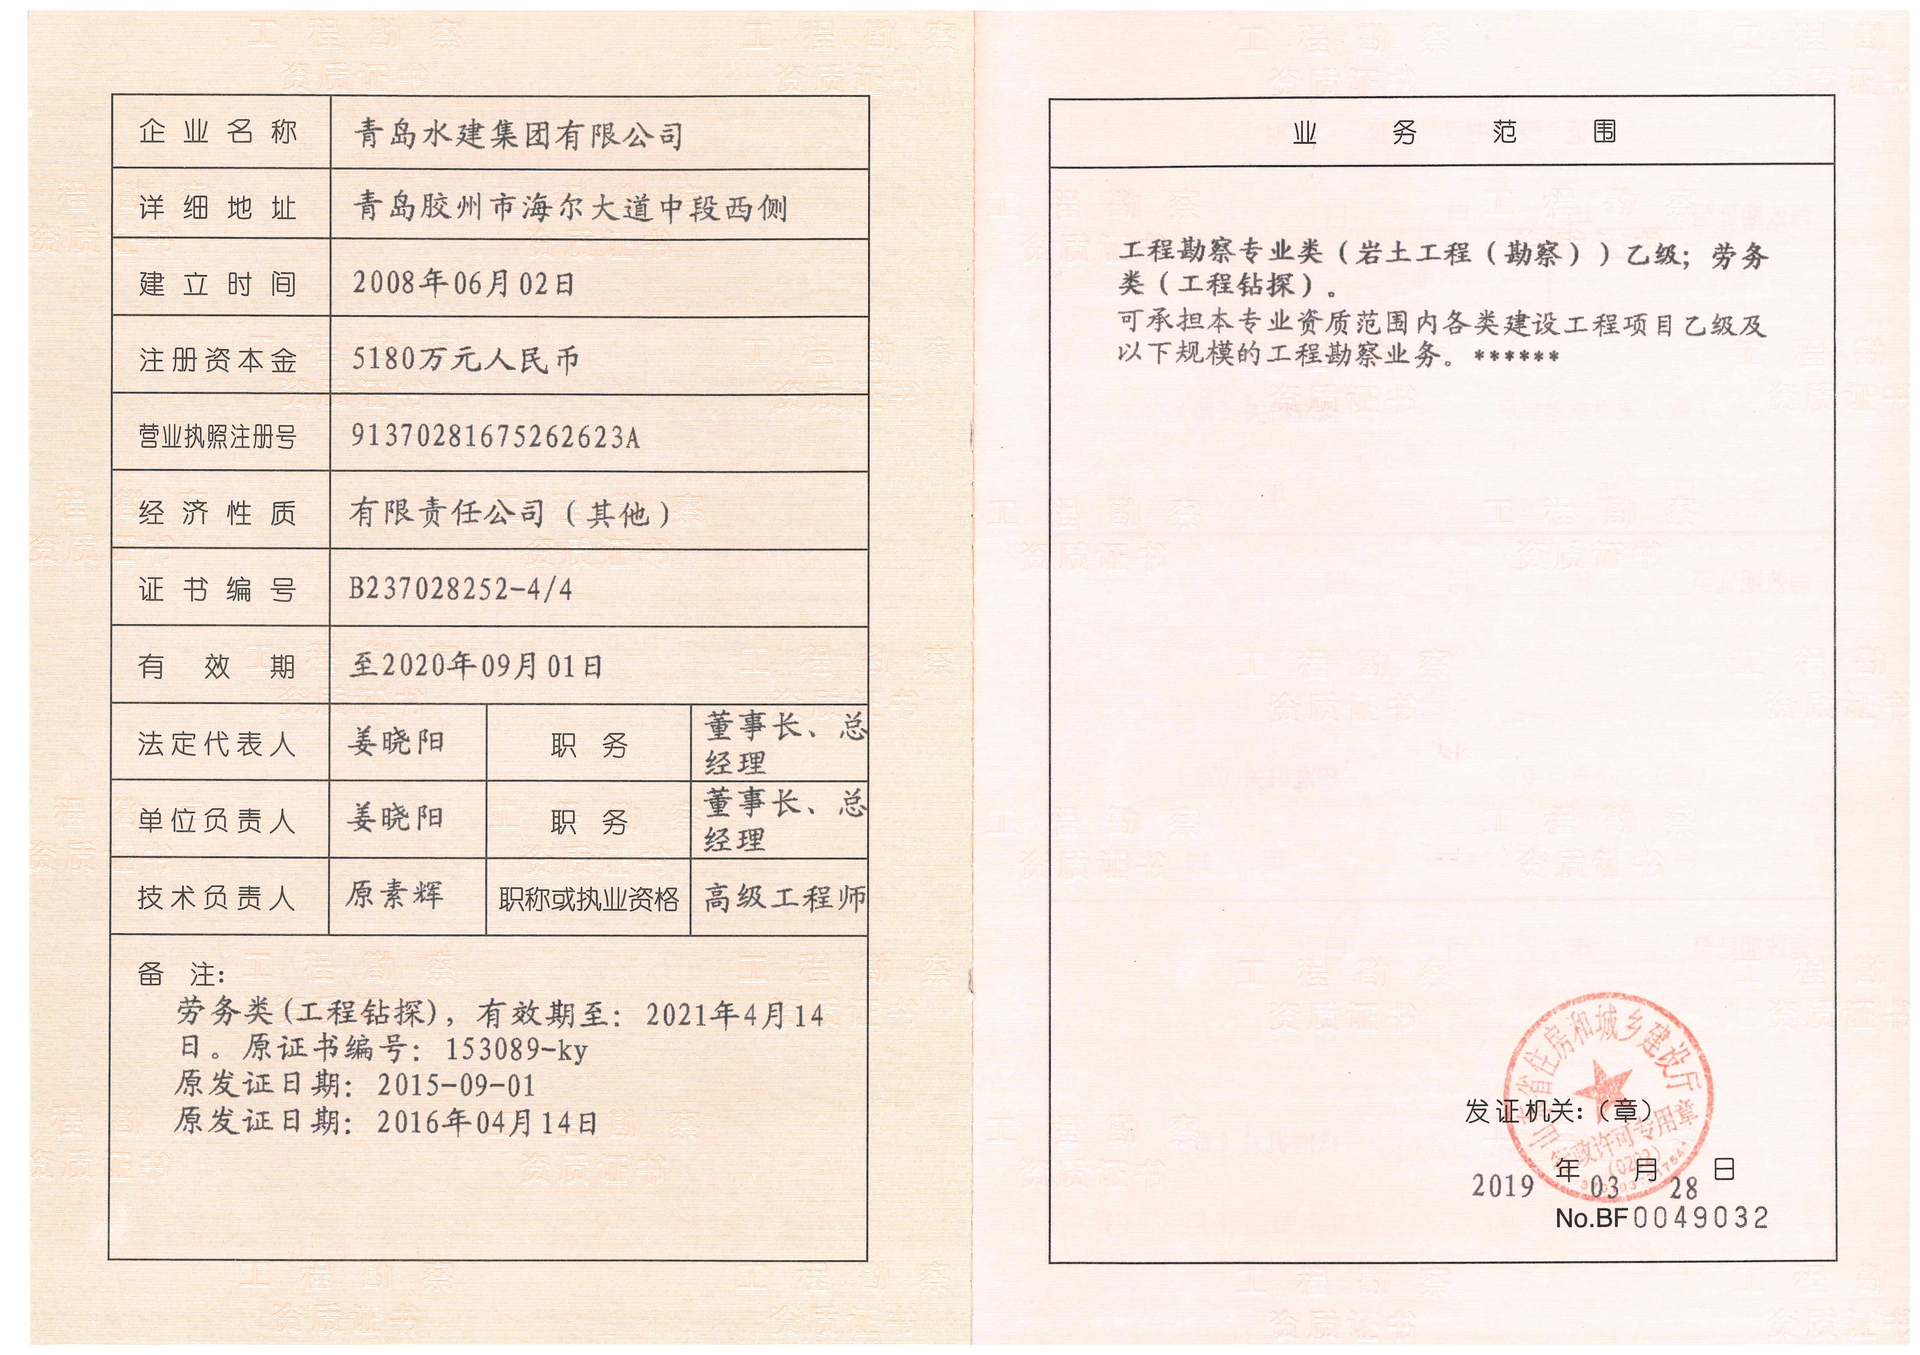 企业名称 青岛水建集团有限公司
详细地址 青岛胶州市海尔大道中段西侧
建立时间 2008年06月02日
注册资本金 5180万元人民币
营业执照注册号 91370281675262623A
经济性质 有限责任公司（其他）
证书编号 B237028252-4/4
有效期 至2020年09月01日
法定代表人 姜晓阳 职务 董事长、总
经理
单位负责人 姜晓阳 职务 董事长、总
经理
技术负责人 原素辉 职称或执业资格 高级工程师
备 注:
劳务类(工程钻探)，有效期至：2021年4月14
日。原证书编号：153089-ky
原发证日期：2015-09-01
原发证日期：2016年04月14日
业务范围
工程勘察专业类（岩土工程（勘察））乙级；劳务
类（工程钻探）。
可承担本专业资质范围内各类建设工程项目乙级及
以下规模的工程勘察业务。******
山东省住房和城乡建设厅
行政许可专用章
发证机关:（章）
2019 年 03 月 28 日
No.BF0049032
工程勘察
资质证书